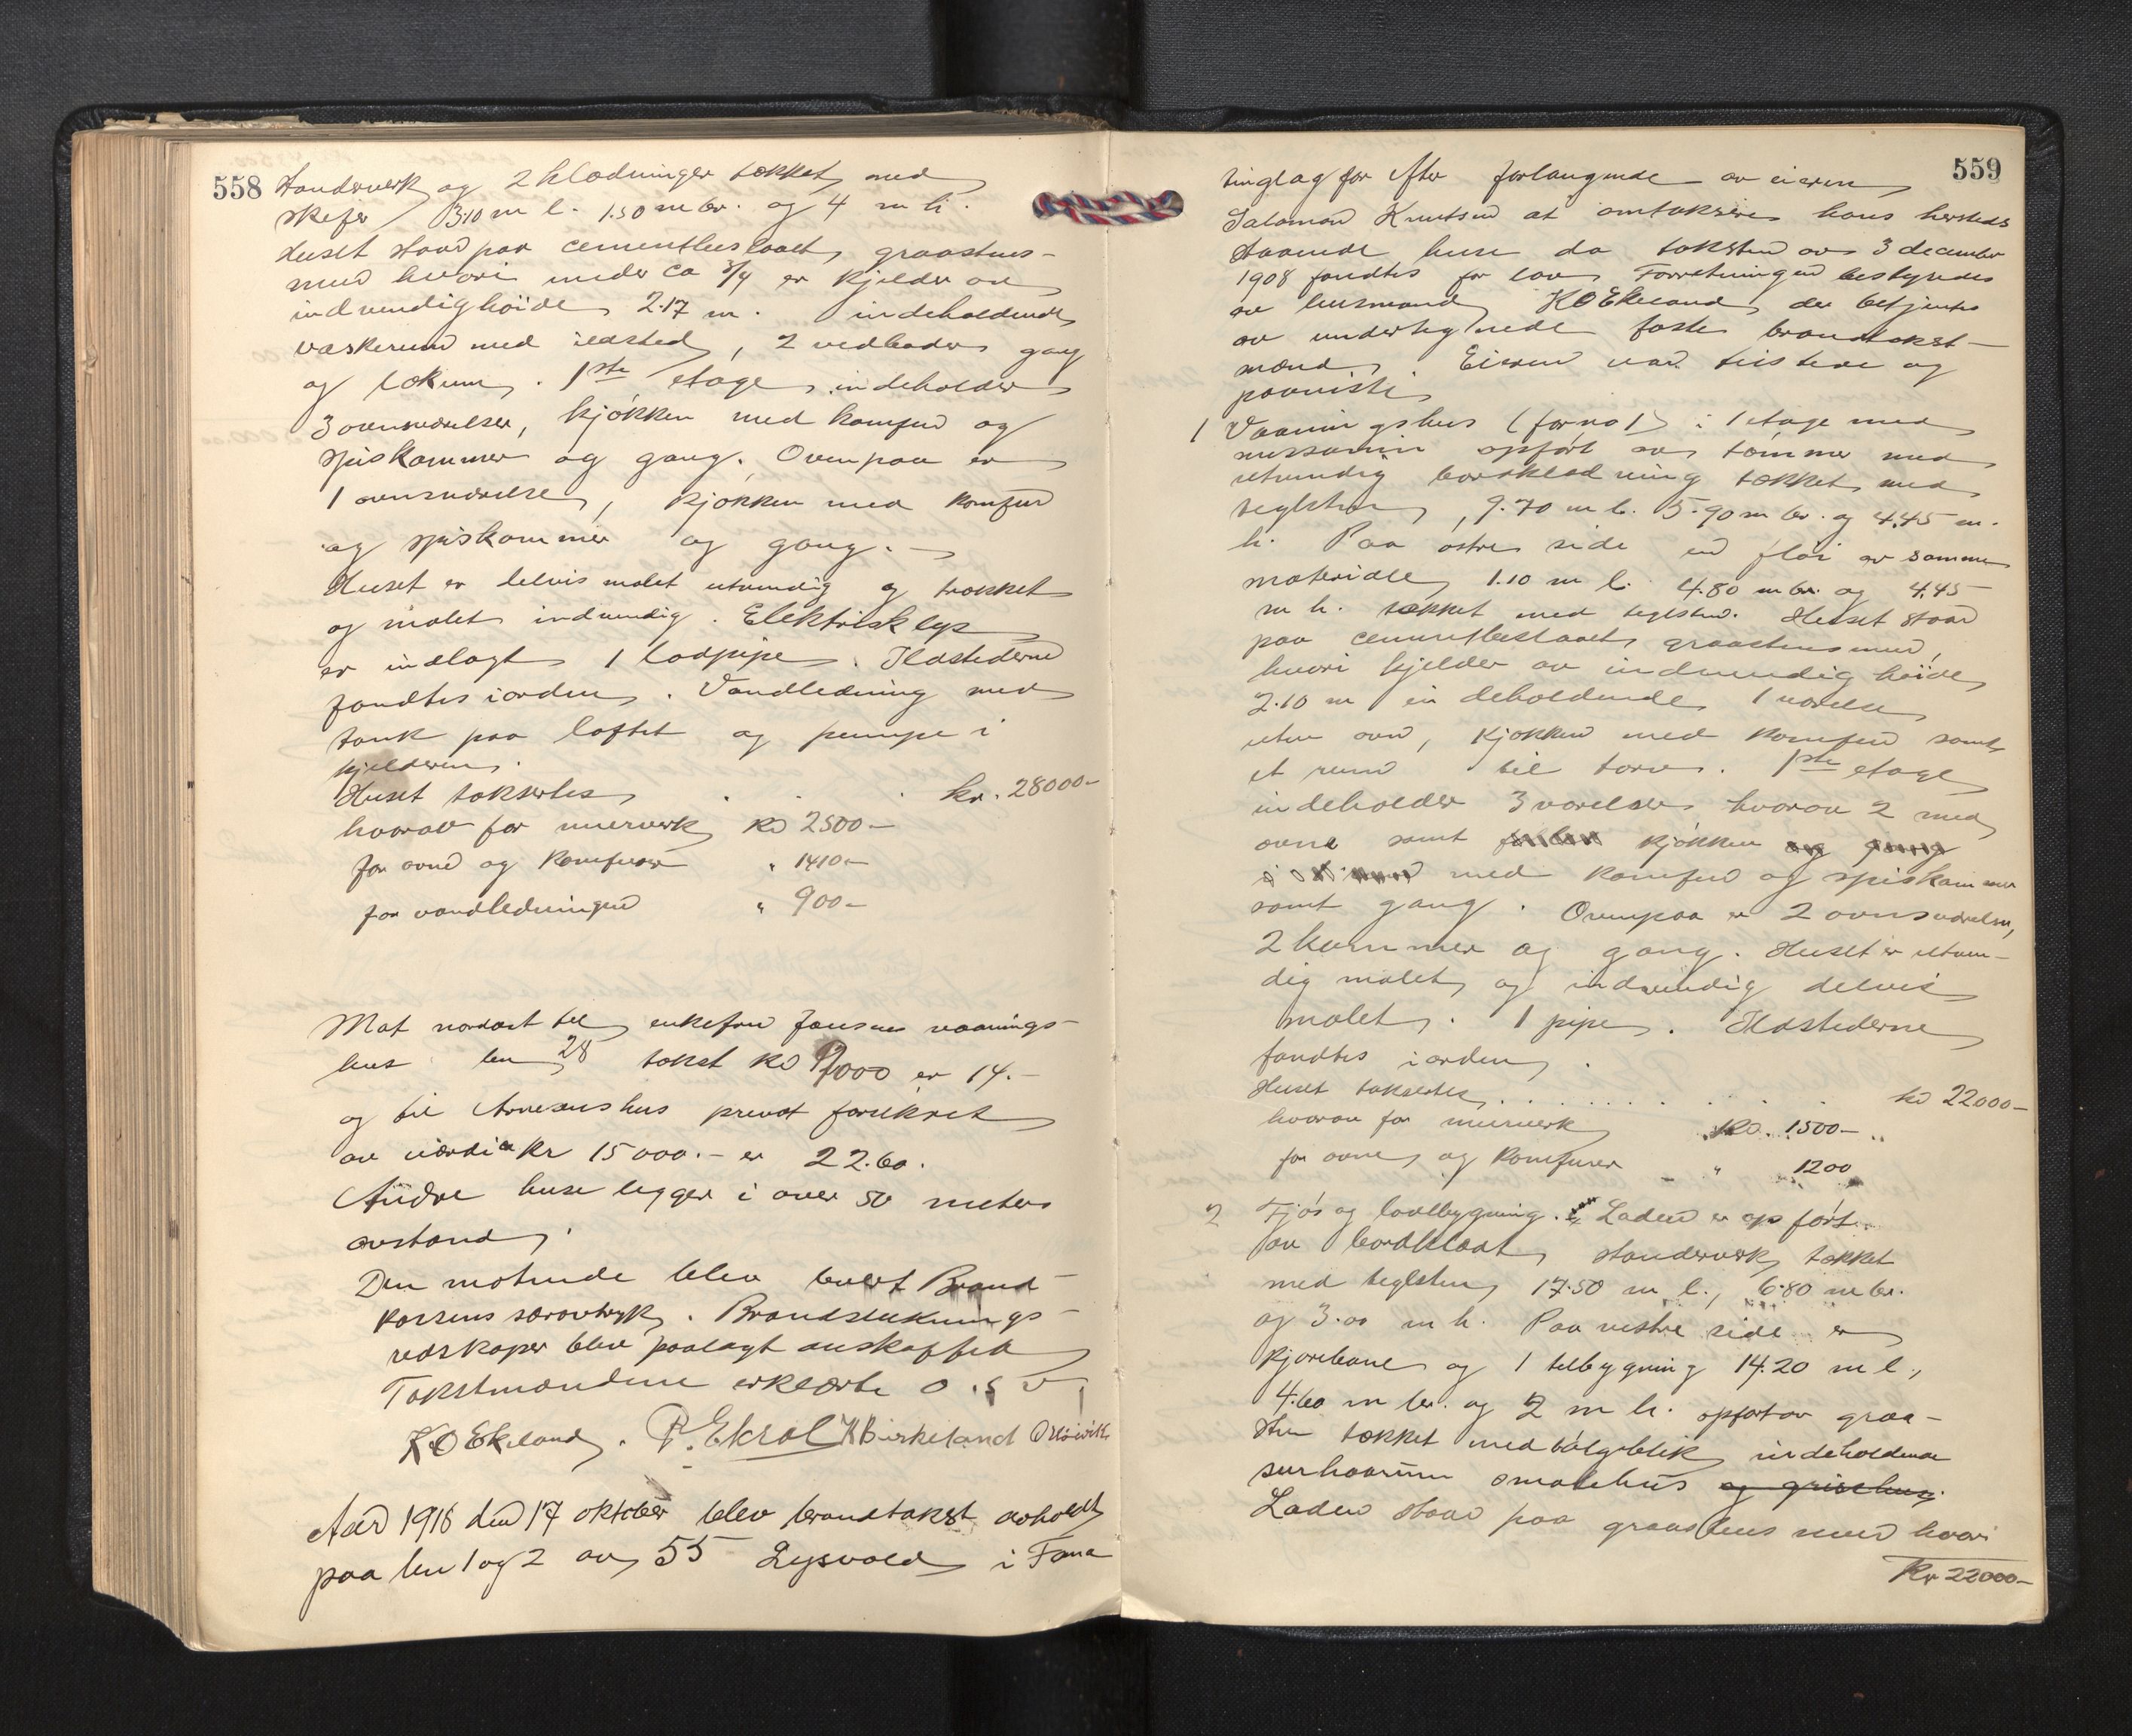 558
Standerverk og 2 klædninger tækket med
skifer 3.10 m l. 1.50 m br. og 4 m h.
Huset staar paa cementbeslaaet graastens-
mur hvori under ca 3/4 er kjelder av
indvendig høide 2.17 m. indeholdende
vaskerum med ildsted, 2 vedboder gang
og lokum. 1ste etage indeholder
3 ovnsværelser, kjøkken med komfur og
spiskammer og gang. Ovenpaa er
1 ovnsværelse, kjøkken med komfur
og spiskammer og gang.
Huset er delvis malet utvendig og trækket
og malet indvendig. Elektrisk lys
er indlagt 1 lodpipe. Ildstederne
fandtes i orden. Vandledning med
tank paa loftet og pumpe i
kjelderen.
Huset takseres . . . kr. 28000-
hvorav for murverk kr 2500-
for ovne og komfurer " 1410-
for vandledningen " 900-
Mot nordost til enkefru Jansens vaanings-
hus bn 28 takst kr 9000 er 14.-
og til Arnesens hus privat forsikret
av værdi kr 15000.- er 22.60.
Andre huse ligger i over 50 meters
avstand.
Den møtende blev levert Brand-
kassens særavtryk. Brandsluknings-
redskaper blev paalagt anskaffet
Takstmændene erklærte o.s.v.
K O Ekeland. P. Ekrol K Birkeland O
Aar 1918 den 17 oktober blev brandtakst avholdt
paa bn 1 og 2 av 55 Lysvold i Fana
559
tinglag for efter forlangende av eieren
Salamon Knutsen at omtaksere hans hersteds
staaende huse da taksten av 3 december
1908 fandtes for lav. Forretningen bestyredes
av lensmand K O Ekeland, der betjentes
av undertegnede faste brandtakst-
mænd. Eieren var tilstede og
paaviste
1 Vaaningshus (før no 1) i 1 etage med
messanin opført av tømmer med
utvendig bordklædning tækket med
teglsten, 9.70 m l. 5.90 m br. og 4.45 m.
h. Paa østre side en fløi av samme
materiale 1.10 m l. 4.80 m br. og 4.45
m h. tækket med teglsten. Huset staar
paa cementbeslaaet graastensmur,
hvori kjelder av indvendig høide
2.10 m indeholdende 1 værelse
uten ovn, kjøkken med komfur samt
et rum til torv. 1ste etage
indeholder 3 værelser hvorav 2 med
ovne samt kjøkken og gang
med komfur og spiskammer
samt gang. Ovenpaa er 2 ovnsværelser,
2 kammer og gang. Huset er utven-
dig malet og indvendig delvis
malet. 1 pipe. Ildstederne
fandtes i orden.
Huset takseres . . . . . . kr 22000-
hvorav for murverk kr. 1500-
for ovne og komfurer " 1200
2 Fjøs og løebygning. Laden er opført
av bordklædt standerverk tækket
med teglsten 17.50 m l., 6.80 m br.
og 3.00 m h. Paa vestre side er
kjørebane og 1 tilbygning 14.20 m l.,
4.60 m br. og 2 m h. opført av graa-
sten tækket med bølgeblik indeholdende
surhaarum smalehus og grisehus.
Laden staar paa graastens mur hvori
Kr 22000-